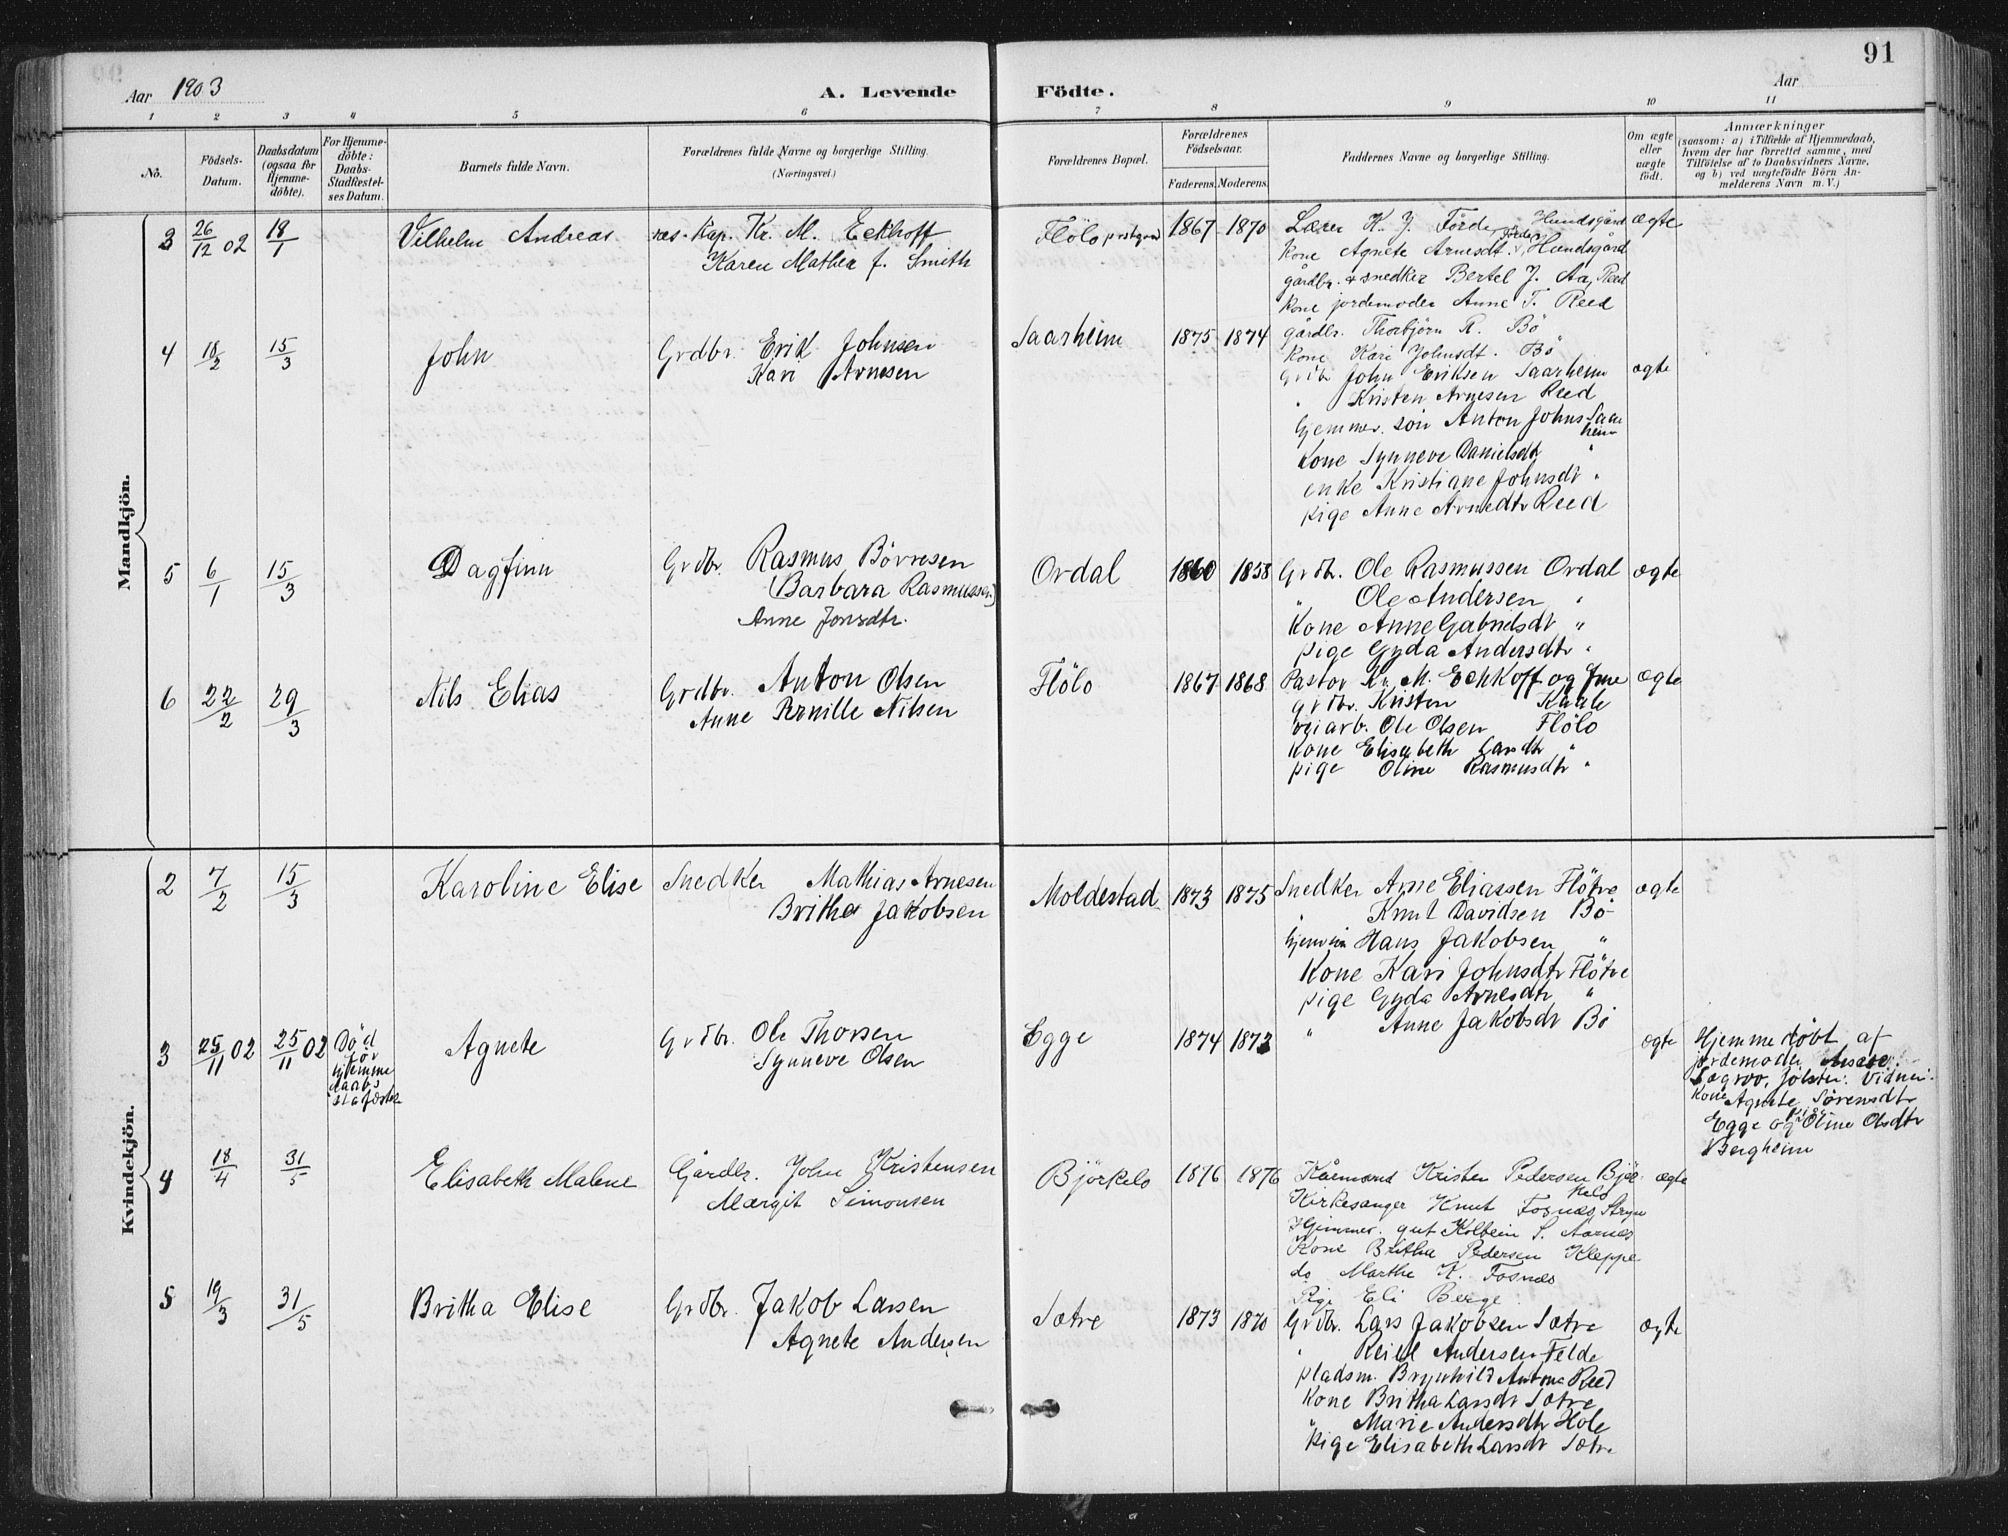 91
Aar 1903
A. Levende Födte.
Aar
1 2 3 4 5 6 7 8 9 10 11
No.
Födsels-Datum.
Daabsdatum (ogsaa for Hjemme-döbte).
For Hjemme-döbte: Daabs-Stadfestel-ses Datum.
Barnets fulde Navn.
Forældrenes fulde Navne og borgerlige Stilling. (Næringsvei.)
Forældrenes Bopæl.
Forældrenes Födselsaar.
Faderens. Moderens.
Faddernes Navne og borgerlige Stilling.
Om ægte eller uægte födt.
Anmærkninger
(saasom: a) i Tilfælde af Hjemmedaab,
hvem der har forrettet samme, med
Tilföielse af to Daabsvidners Navne,
og b) ved uægtefödte Börn An-
melderens Navn m. V.)
Mandkjön.
3 26/12 02 18/1 Vilhelm Andreas res. Kap. Kr. M. Eckhoff Flölo 1867 1870 Lærer K. J. Förde Hundsgård ægte
Karen Mathea f. Smith
Kone Agnete Arnesdt. Hundsgård
gårdbr. & snedker Bertel J. Aa, Reed
Kone jordemoder Anne T. Reed
gårdbr. Thorbjörn R. Bö
Kone Kari Johnsdt. Bö
4 18/2 15/3 John Grdbr. Erik Johnsen Saarheim 1875 1874
Kari Arnesen
Grdbr John Eriksen Saarheim ægte
" Kristen Arnesen Reed
hjemmev. sön Anton Johns Saarheim
Kone Synneve Danielsdtr "
enke Kristiane Johnsdt "
pige Anne Arnedtr Reed
5 6/1 15/3 Dagfinn Grdbr. Rasmus Börresen Ordal 1860 1858 Grdbr. Ole Rasmussen Ordal ægte
(Barbara Rasmussen)
Anne Jonsdtr.
" Ole Andersen "
Kone Anne Gabrielsdt "
pige Gyda Andersdtr "
6 22/2 29/3 Nils Elias Grdbr. Anton Olsen Flölo 1867 1868 Pastor Kr. M. Eckhoff og frue ægte
Anne Pernille Nilsen
grdbr. Kristen Kaale
veiarb. Ole Olsen Flölo
Kone Elisabeth Larsdtr "
pige Oline Rasmusdtr "
Kvindekjön.
2 7/2 15/3 Karoline Elise Snedker Mathias Arnesen Moldestad 1873 1875 Snedker Arne Eliassen Flötre ægte
Brithe Jakobsen
" Knut Davidsen Bö
Hans Jakobsen "
Kone Kari Johnsdtr Flötre
pige Gyda Arnesdtr "
" Anne Jakobsdt Bö
3 25/11 02 25/11 02 Död för hjemme daabs stadfæstelse Agnete Grdbr. Ole Thorsen Egge 1874 1872 ægte
Synneve Olsen
Hjemmedöbt af
jordemoder
Sægrov, Jölster. Vidner:
Kone Agnete Sörensdtr
Egge og pige Oline Olsdtr
Bergheim
4 18/4 31/5 Elisabeth Malene Gårdbr. John Kristensen Björkelo 1876 1876 Kårmand Kristen Pedersen Björkelo ægte
Margit Simonsen
Kirkesanger Knut Fosnæs, Stryn
Hjemmev. gut Kolbein S. Aarnes
Kone Britha Pedersen Kleppe
do Marthe K. Fosnæs
Pige Eli Berge
5 19/3 31/5 Britha Elise Grdbr. Jakob Larsen Sætre 1873 1870 Grdbr. Lars Jakobsen Sætre ægte
Agnete Andersen
" Andersen Felde
pladsm. Brynhild Antons Reed
Kone Britha Larsdt Sætre
" Marie Andersdtr Hole
Pige Elisabeth Larsdt Sætre